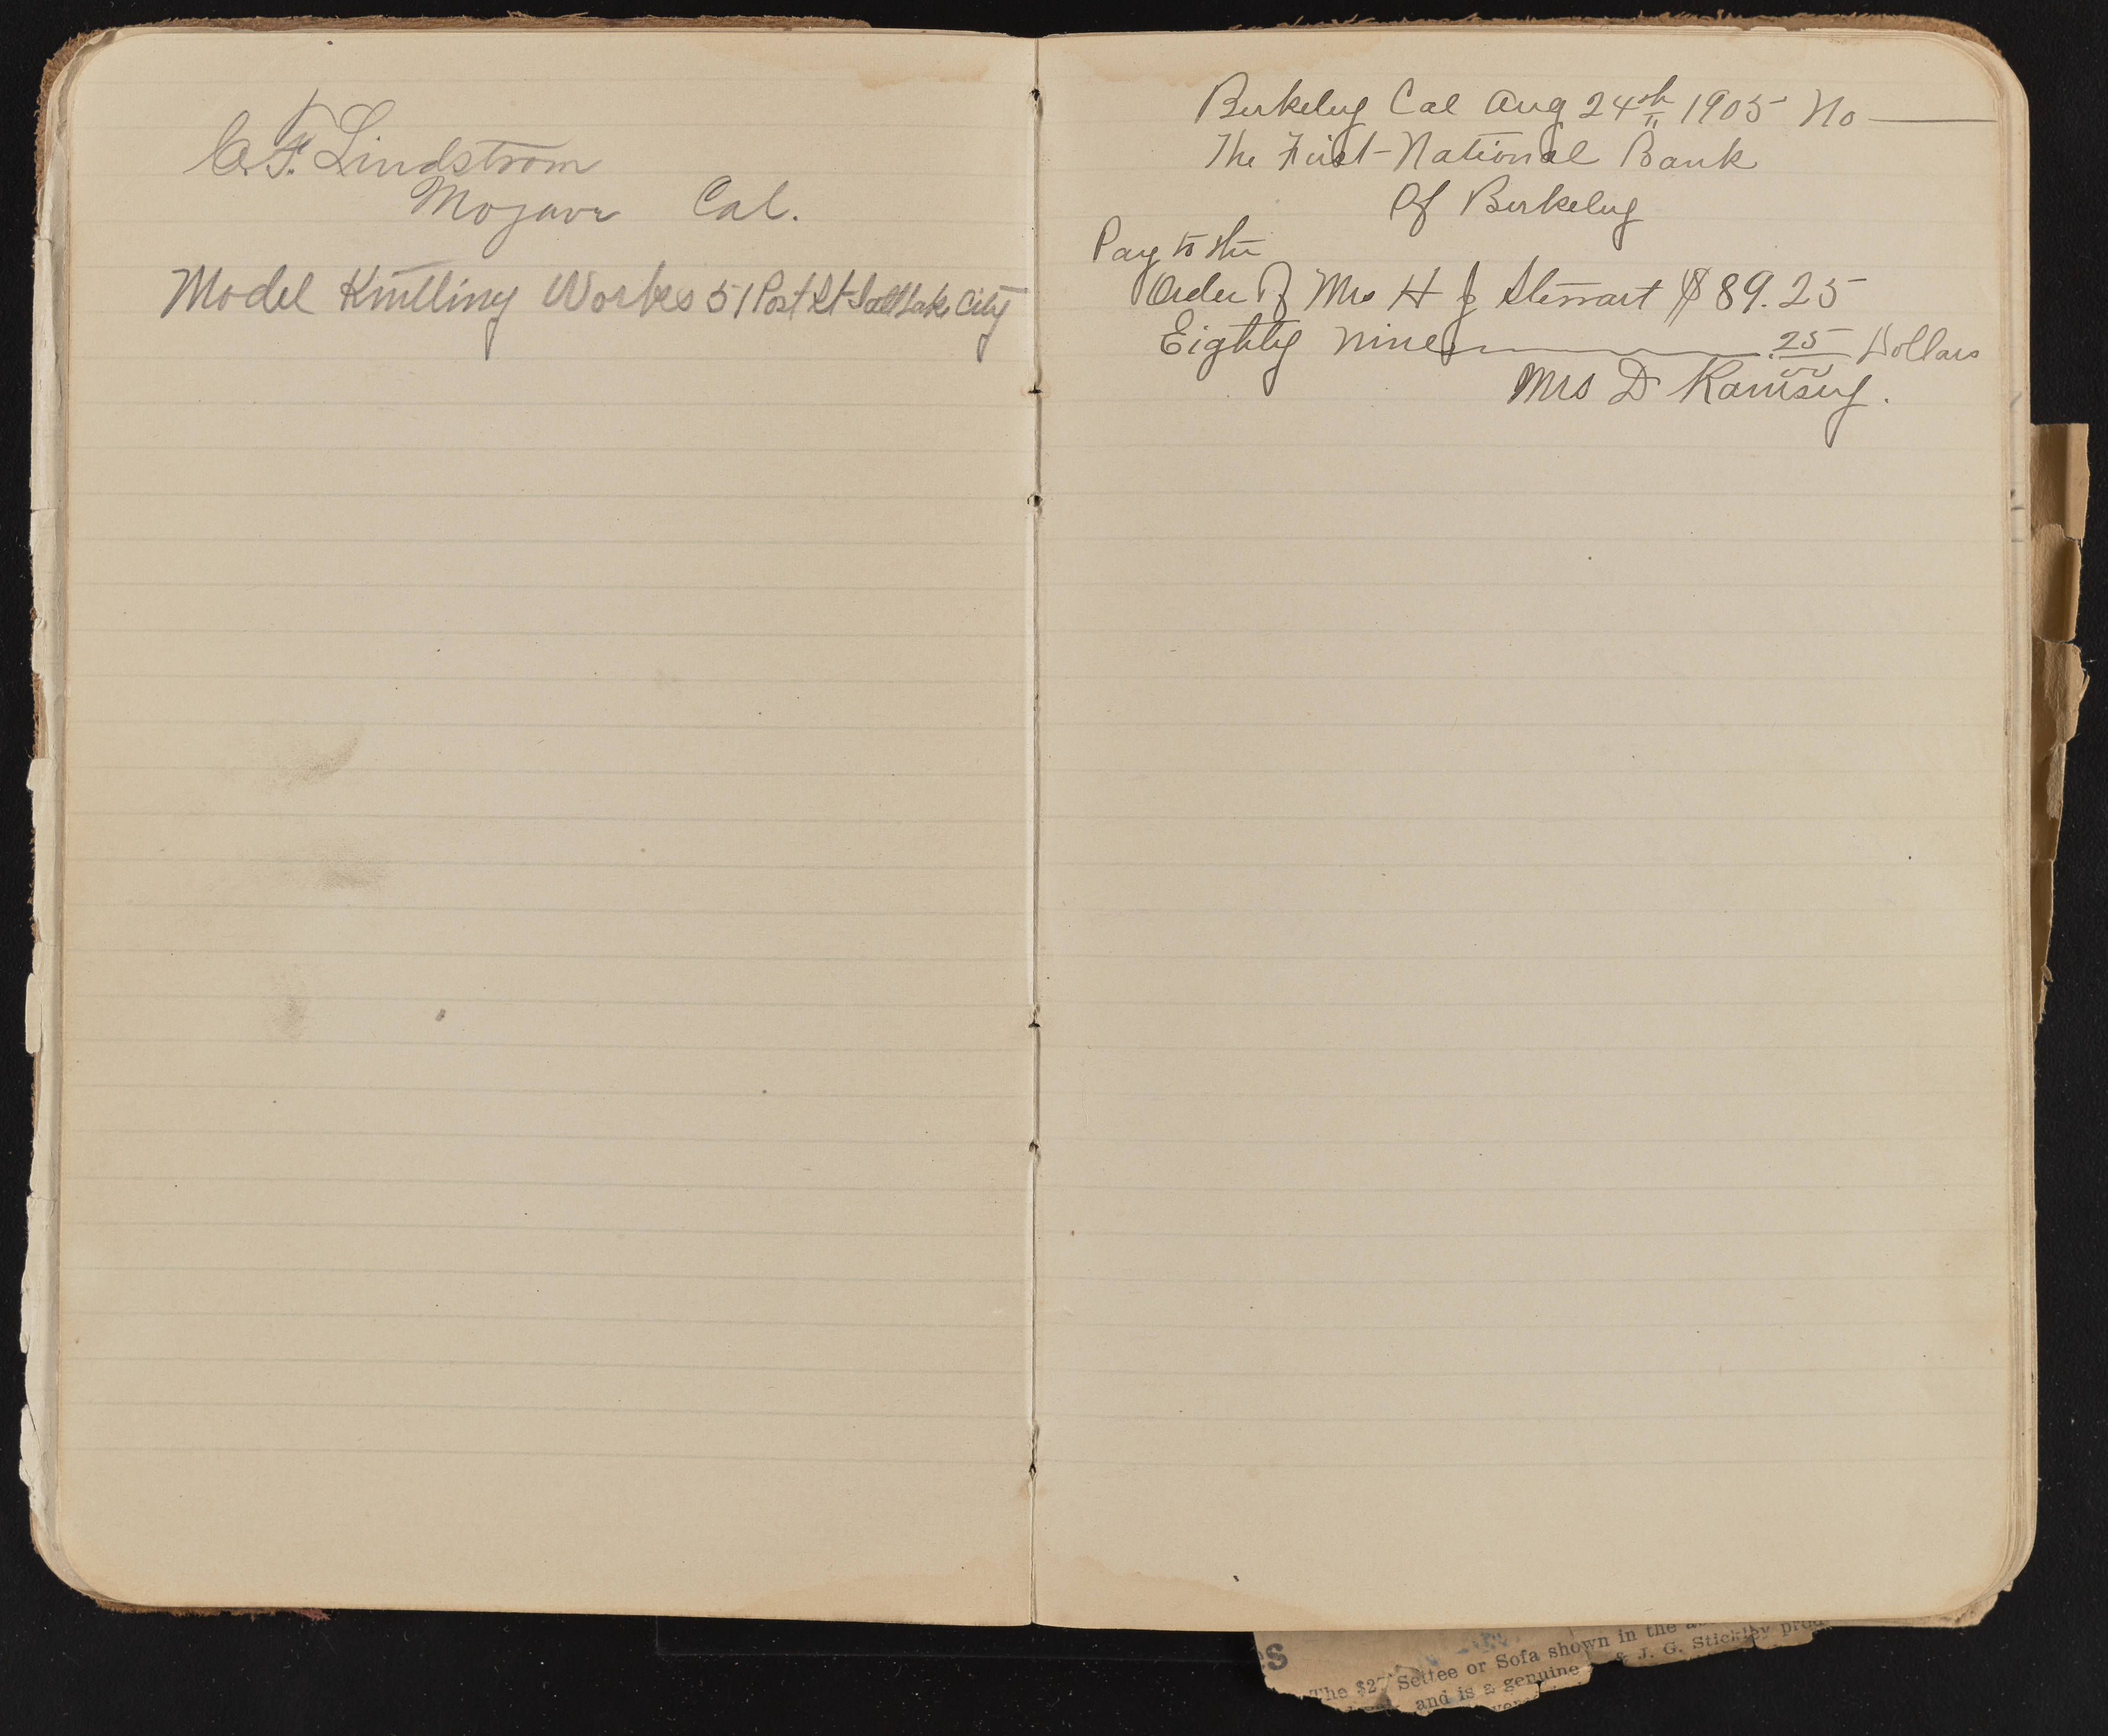 C. F. Lindstrom
Mojave Cal.
Model Knitting Works 51 Post St Salt Lake City
Berkeley Cal Aug 24th 1905 No
The First National Bank
Of Berkeley
Pay to the
Order of Mrs H J Stewart $89.25
Eighty nine 25 Dollars
Mrs D Ramsey.
s
The $27 Settee or Sofa shown in the
and is a genuine & J. G. Stickley